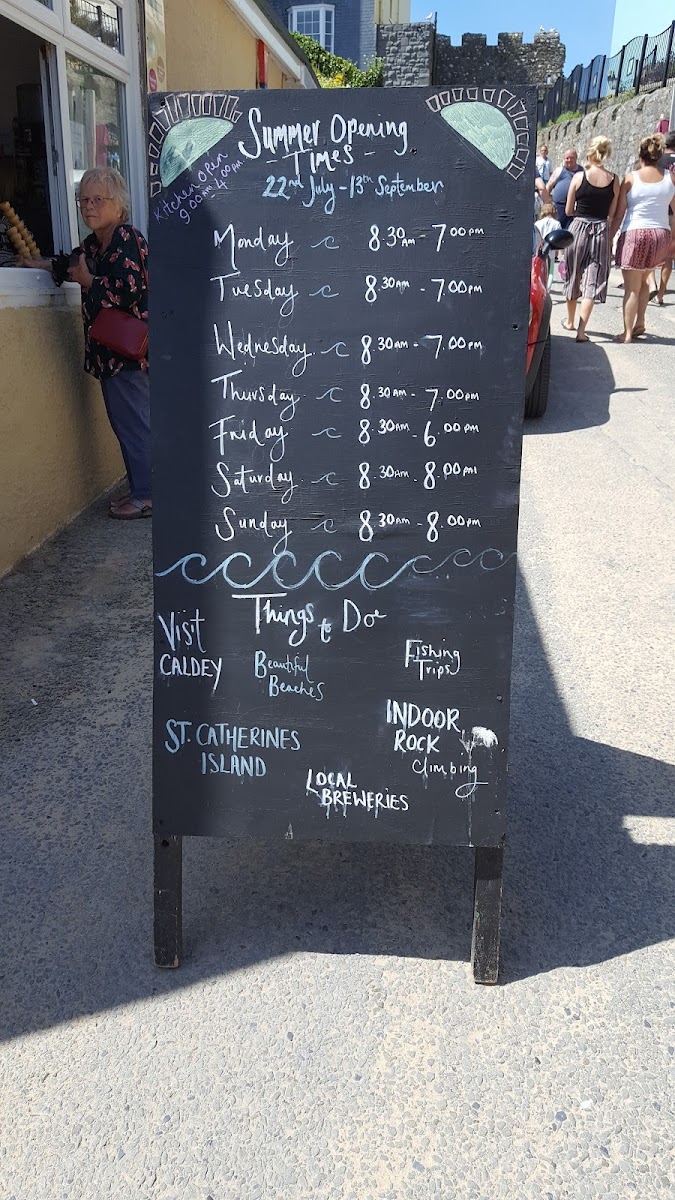 Summer Opening
- Times -
22nd July - 13th September
Kitchen open
9:00am - 4:00pm
Monday 8.30am - 7.00pm
Tuesday 8.30am - 7.00pm
Wednesday 8.30am - 7.00pm
Thursday 8.30am - 7.00pm
Friday 8.30am - 6.00pm
Saturday 8.30am - 8.00pm
Sunday 8.30am - 8.00pm
Things to Do
Visit
CALDEY
Beautiful
Beaches
Fishing
Trips
ST. CATHERINES
ISLAND
INDOOR
ROCK
Climbing
LOCAL
BREWERIES